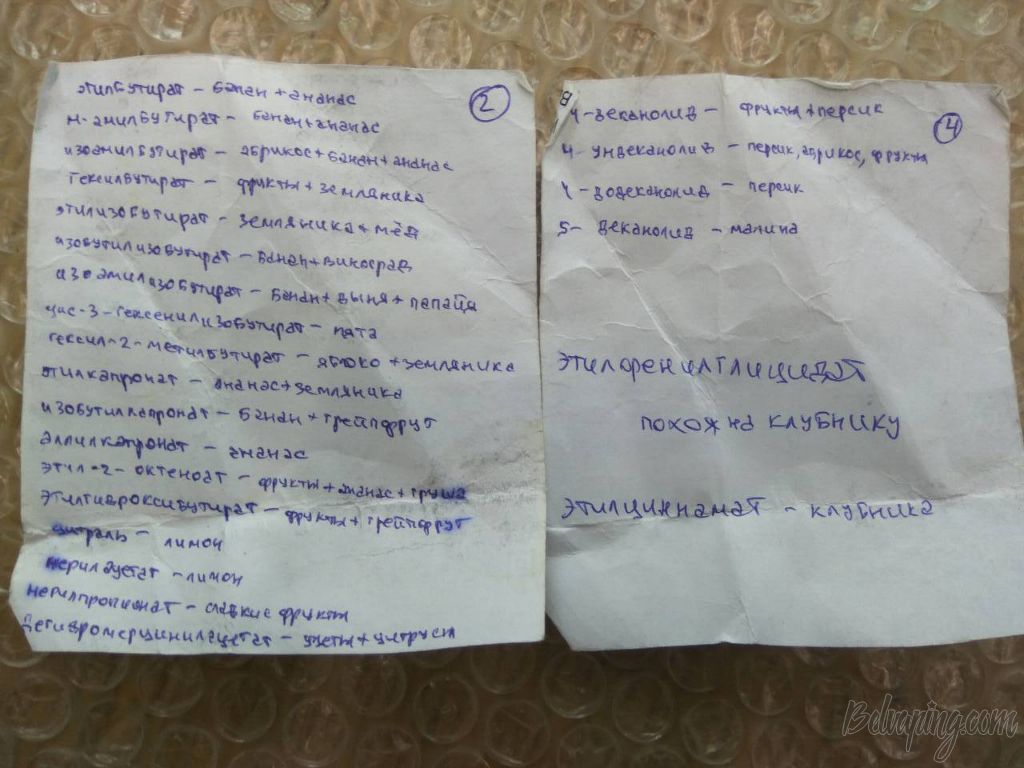 2
этилбутират - банан + ананас
н-амилбутират - банан + ананас
изоамилбутират - абрикос + банан + ананас
гексилбутират - фрукты + земляника
этилизобутират - земляника + мёд
изобутилизобутират - банан + виноград
изоамилизобутират - банан + дыня + папайя
цис-3-гексенилизобутират - мята
гексил-2-метилбутират - яблоко + земляника
этилкапронат - ананас + земляника
изобутилкапронат - банан + грейпфрут
аллилкапронат - ананас
этил-2-октеноат - фрукты + ананас + груша
этилгидроксибутират - фрукты + грейпфрут
цитраль - лимон
нерилацетат - лимон
нерилпропионат - сладкие фрукты
дегидромерцинилацетат - цветы + цитрусы
4
4-деканолид - фрукты + персик
4-ундеканолид - персик, абрикос, фрукты
4-додеканолид - персик
5-деканолид - малина
этилфенилглицидат
похож на клубнику
этилциннамат - клубника
Belvaping.com